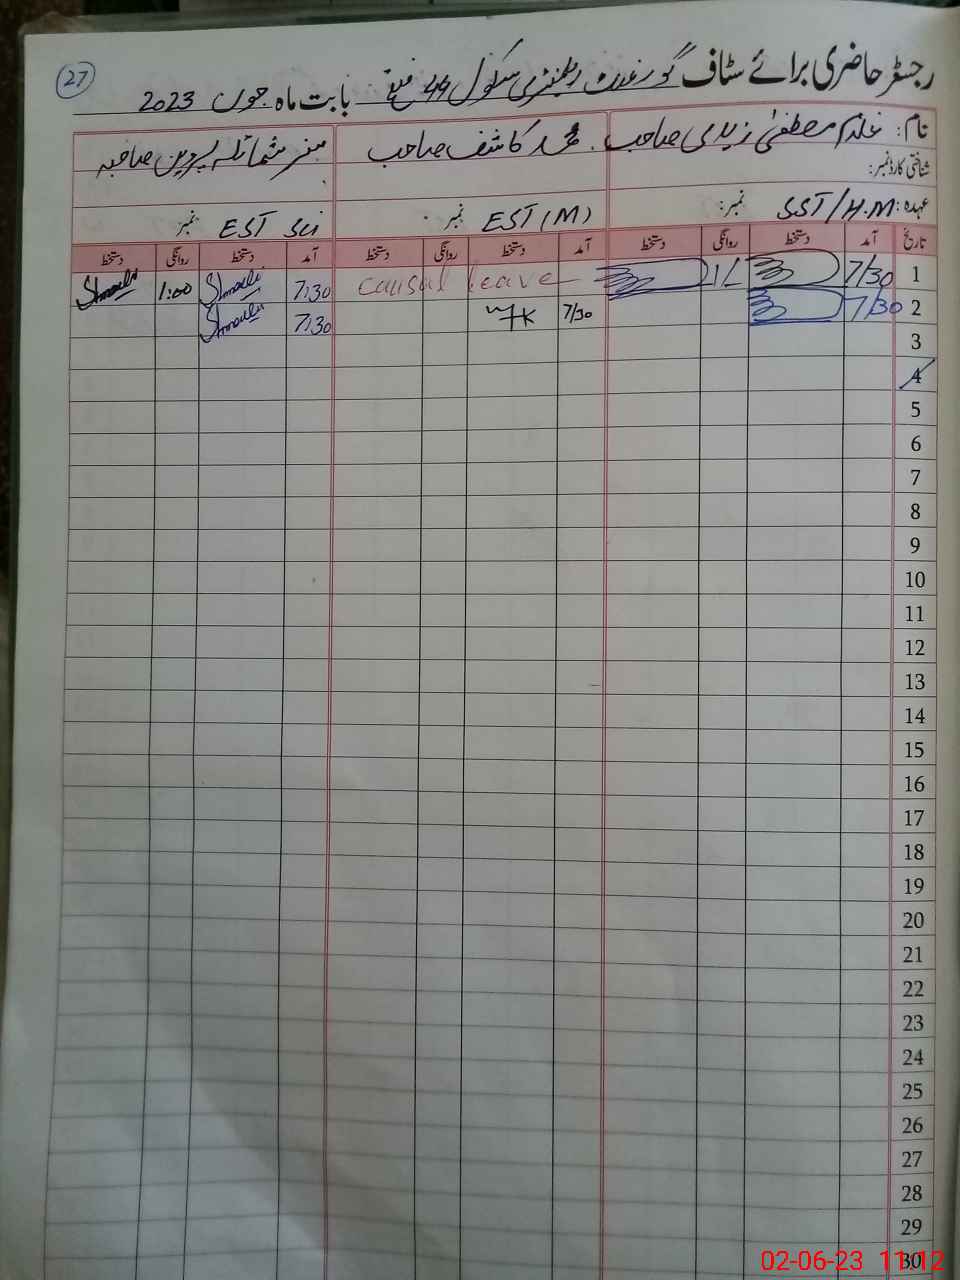 27
رجسٹر حاضری برائے سٹاف گورنمنٹ ایلیمنٹری سکول 44 بابت ماہ جون 2023
نام: غلام مصطفیٰ زیدی صاحب محمد کاشف صاحب مسز شمائلہ پروین صاحبہ
شناختی کارڈ نمبر:
عہدہ: SST/H.M نمبر: EST (M) نمبر: EST Sci نمبر:
تاریخ آمد دستخط روانگی دستخط آمد دستخط روانگی دستخط آمد دستخط روانگی دستخط
1 7/30 1/ Causal leave 7:30 1:00
2 7/30 7/30 7:30
3
4
5
6
7
8
9
10
11
12
13
14
15
16
17
18
19
20
21
22
23
24
25
26
27
28
29
30
02-06-23 11:12